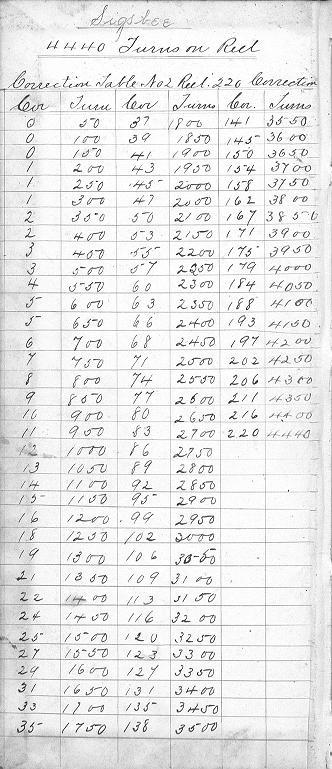 Sigsbee
4440 Turns on Reel
Correction Table No 2 Reel. 220 Correction
Cor Turn Cor Turns Cor. Turns
0 50 37 1800 141 3550
0 100 39 1850 145 3600
0 150 41 1900 150 3650
1 200 43 1950 154 3700
1 250 45 2000 158 3750
1 300 47 2000 162 3800
2 350 50 2100 167 3850
2 400 53 2150 171 3900
3 450 55 2200 175 3950
3 500 57 2250 179 4000
4 550 60 2300 184 4050
5 600 63 2350 188 4100
5 650 66 2400 193 4150
6 700 68 2450 197 4200
7 750 71 2500 202 4250
8 800 74 2550 206 4300
9 850 77 2600 211 4350
10 900 80 2650 216 4400
11 950 83 2700 220 4440
12 1000 86 2750
13 1050 89 2800
14 1100 92 2850
15 1150 95 2900
16 1200 99 2950
18 1250 102 3000
19 1300 106 3050
21 1350 109 3100
22 1400 113 3150
24 1450 116 3200
25 1500 120 3250
27 1550 123 3300
29 1600 127 3350
31 1650 131 3400
33 1700 135 3450
35 1750 138 3500